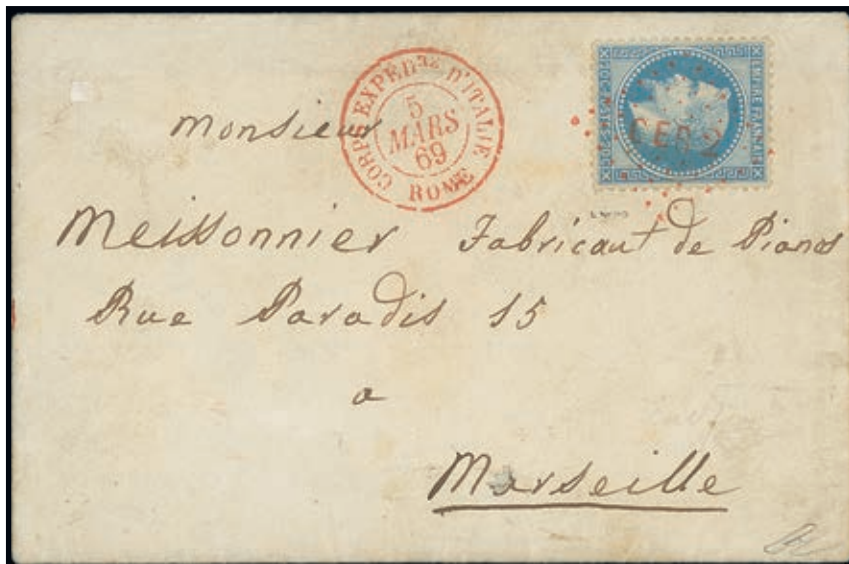 CORPS EXPED.re D'ITALIE
5
MARS
69
ROME
EMPIRE FRANÇAIS
CED 2
Monsieur
Meissonnier Fabricant de Pianos
Rue Paradis 15
a
Marseille